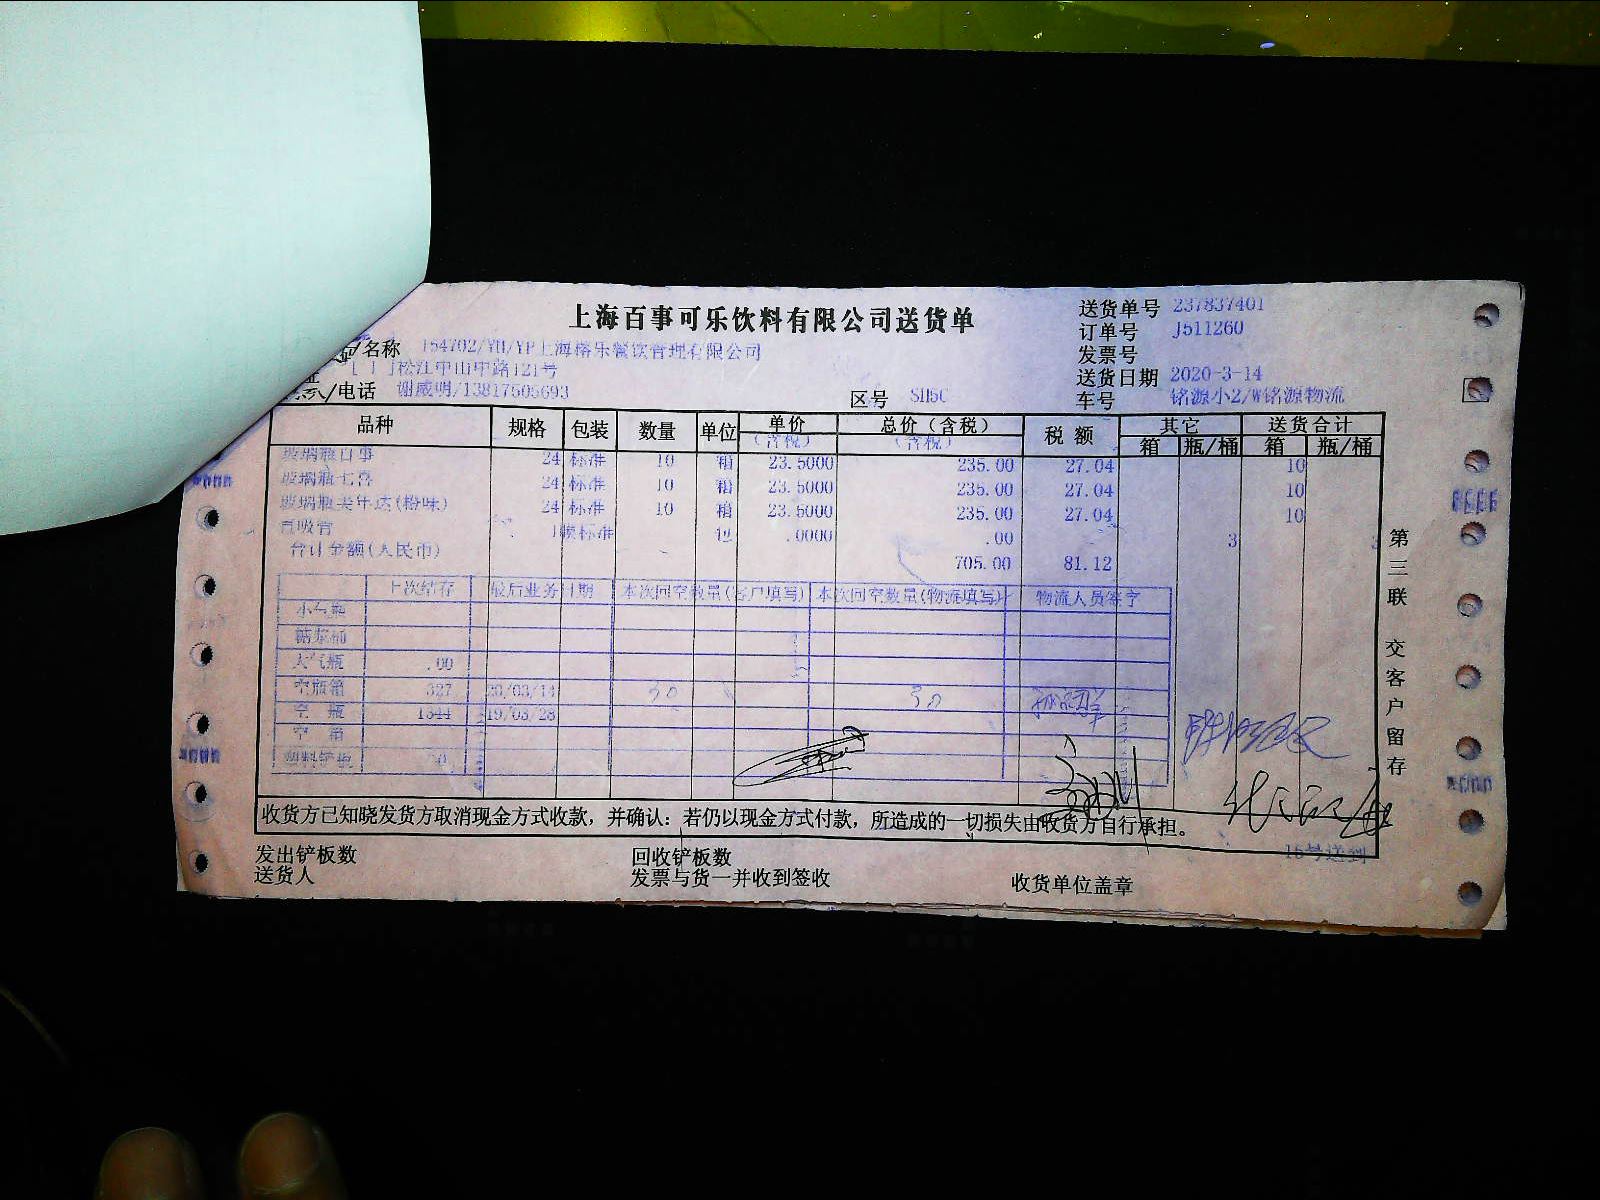 上海百事可乐饮料有限公司送货单
送货单号 237837401
订单号 J511260
发票号
送货日期 2020-3-14
车号 铭源小2/W铭源物流
名称 154702/YH/YP上海榕乐餐饮管理有限公司
松江中山中路121号
/电话 谢威明/13817505693
区号 SH5C
品种 规格 包装 数量 单位 单价(含税) 总价(含税) 税额 其它 送货合计
箱 瓶/桶 箱 瓶/桶
玻璃瓶百事 24 标准 10 箱 23.5000 235.00 27.04 10
玻璃瓶七喜 24 标准 10 箱 23.5000 235.00 27.04 10
玻璃瓶美年达(橙味) 24 标准 10 箱 23.5000 235.00 27.04 10
直吸管 1 标准 .0000 .00 3 3
合计金额(人民币) 705.00 81.12
上次结存 最后业务日期 本次回空数量(客户填写) 本次回空数量(物流填写) 物流人员签字
小气瓶
糖浆桶
大气瓶 .00
空瓶箱 327 20/03/14 30 30
空瓶 1344 19/03/28
空箱
塑料铲板
收货方已知晓发货方取消现金方式收款，并确认：若仍以现金方式付款，所造成的一切损失由收货方自行承担。
15号送到
发出铲板数 回收铲板数
送货人 发票与货一并收到签收 收货单位盖章
第三联 交客户留存